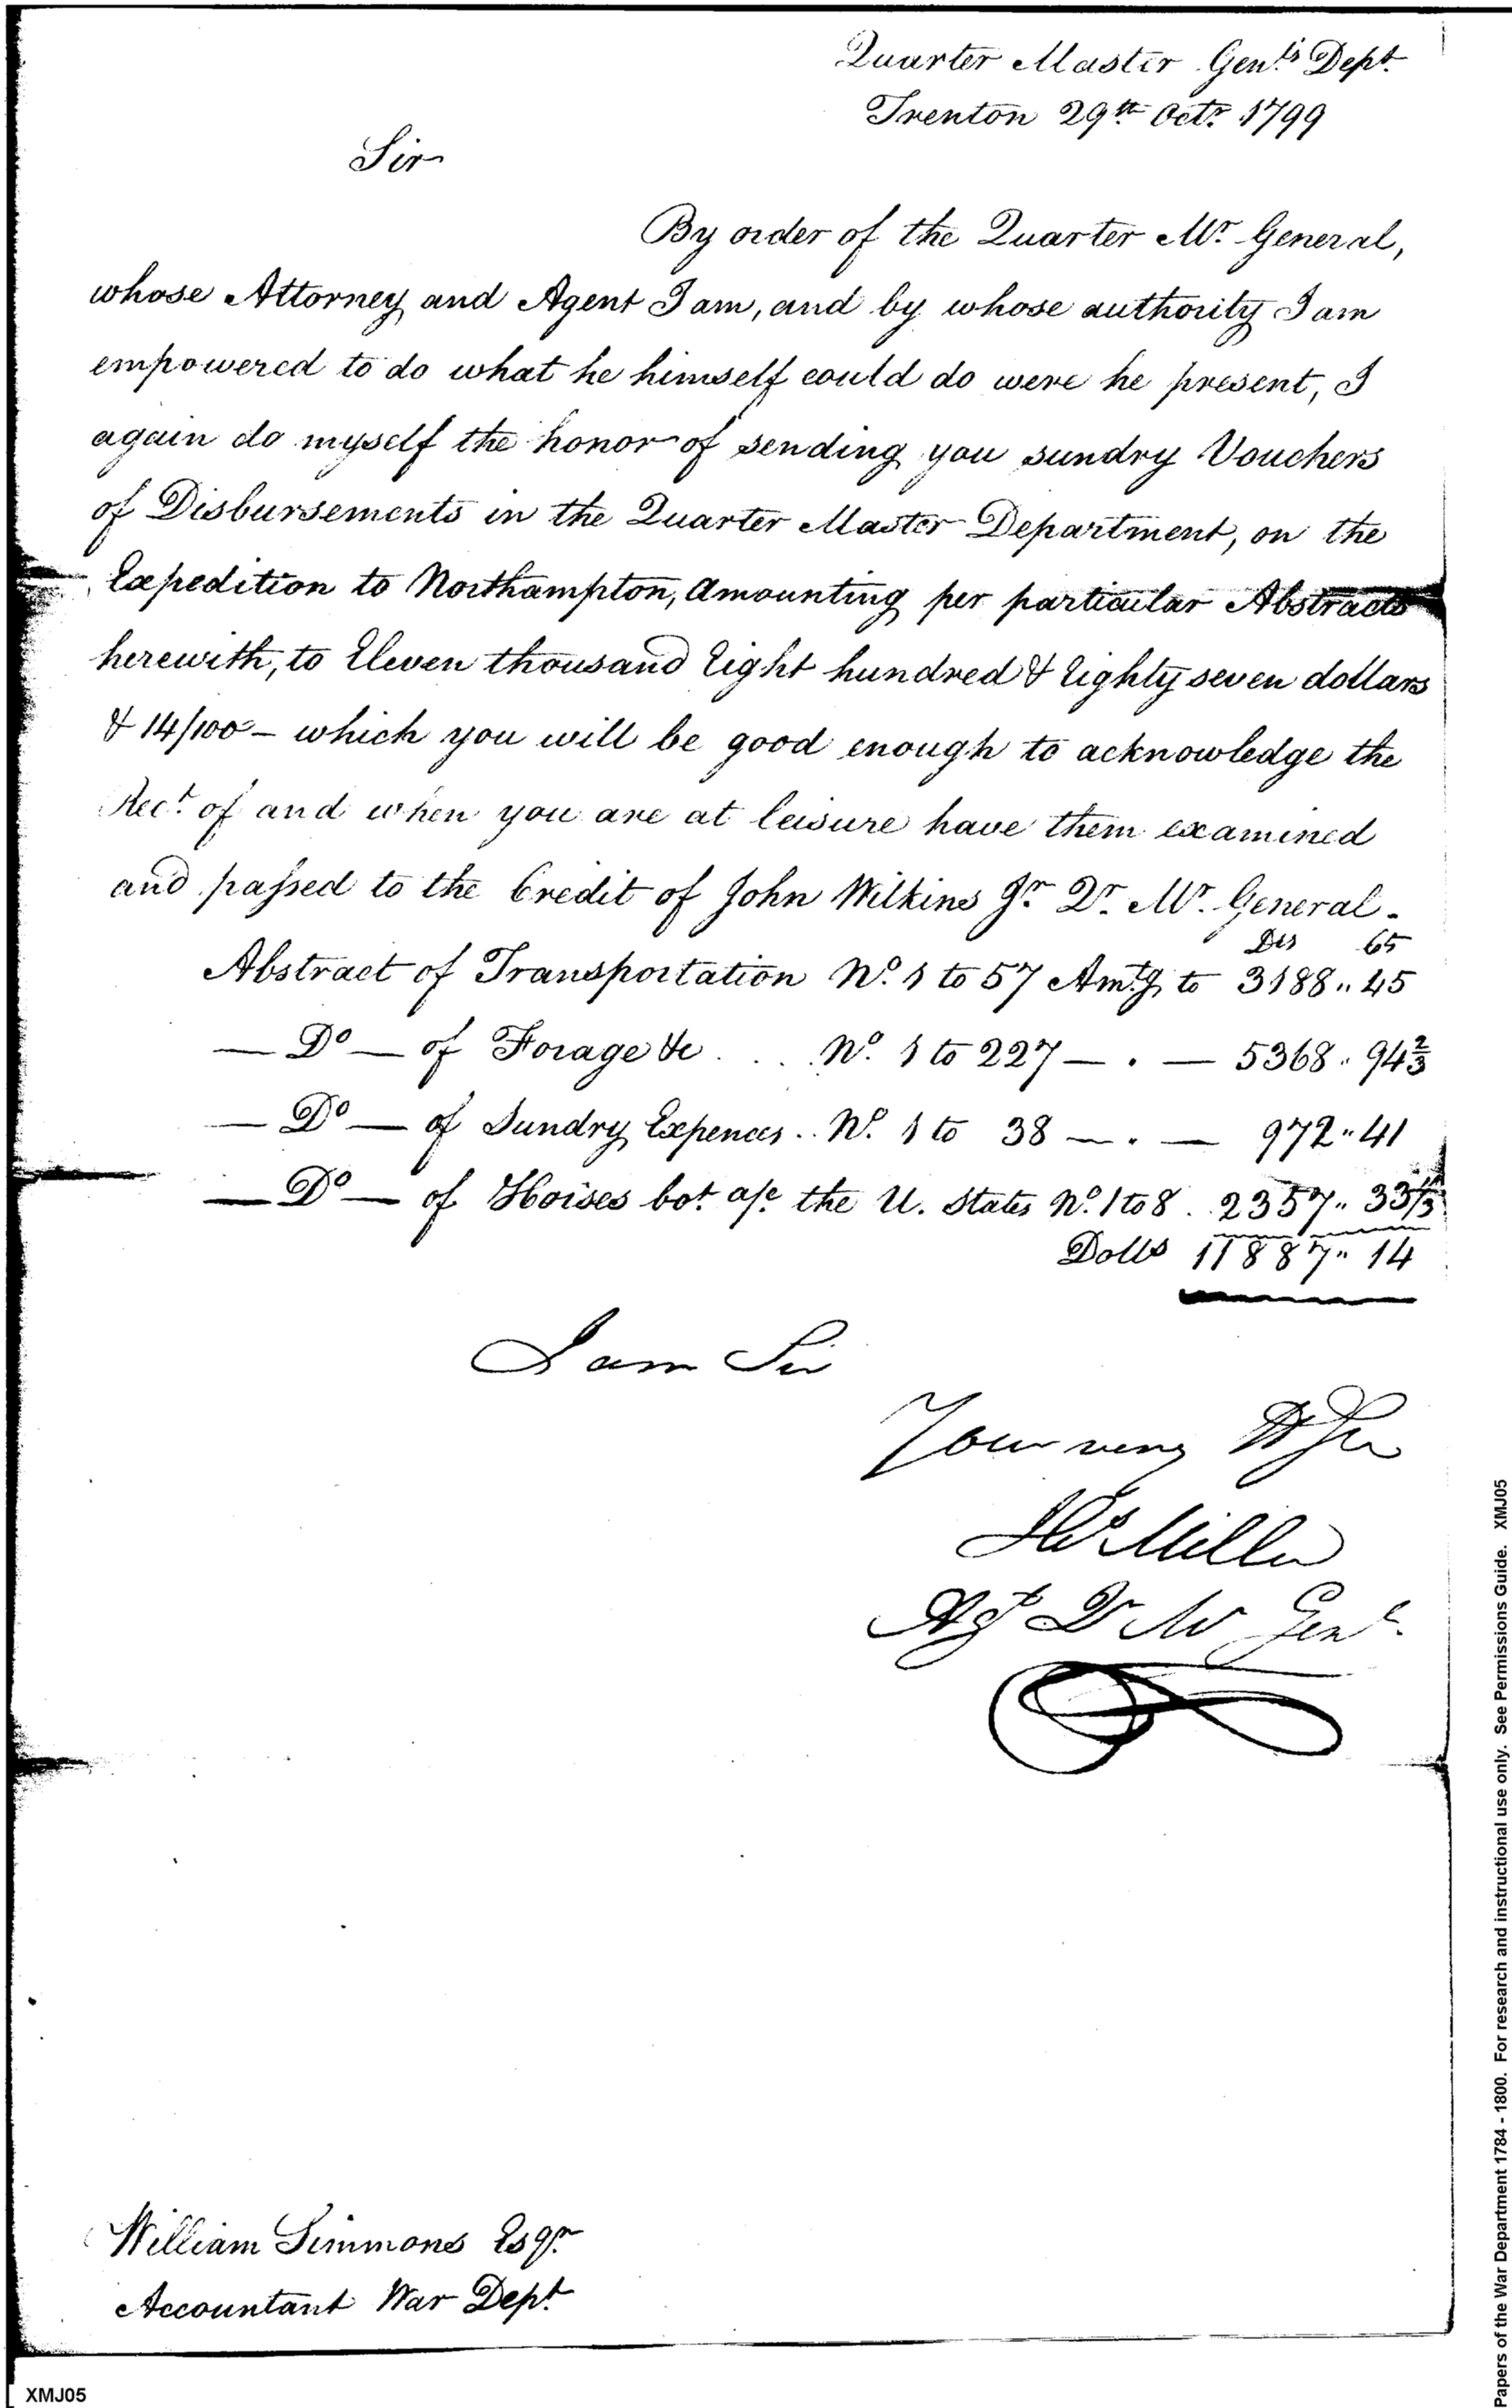 Quarter Master Gen.ls Dept.
Trenton 29th Octr. 1799
Sir
By order of the Quarter Mr. General,
whose Attorney and Agent I am, and by whose authority I am
empowered to do what he himself could do were he present, I
again do myself the honor of sending you sundry Vouchers
of Disbursements in the Quarter Master Department, on the
Expedition to Northampton, Amounting per particular Abstracts
herewith, to Eleven thousand Eight hundred & Eighty seven dollars
& 14/100 - which you will be good enough to acknowledge the
Rect. of and when you are at leisure have them examined
and passed to the Credit of John Wilkins Jr. Qr. Mr. General.
Abstract of Transportation No. 1 to 57 Amtg. to 3188 .. 45
— Do — of Forage &c . . . No. 1 to 227 — . — 5368 .. 94 2/3
— Do — of Sundry Expences .. No. 1 to 38 — . — 972 .. 41
— Do — of Horses bot. a/c. the U. States No. 1 to 8 . 2357 .. 33 1/3
Dolls 11887 .. 14
I am Sir
Your very H Ser
Miller
Agt Qr Mr Genl.
William Simmons Esqr.
Accountant War Dept.
XMJ05
Papers of the War Department 1784 - 1800. For research and instructional use only. See Permissions Guide. XMJ05